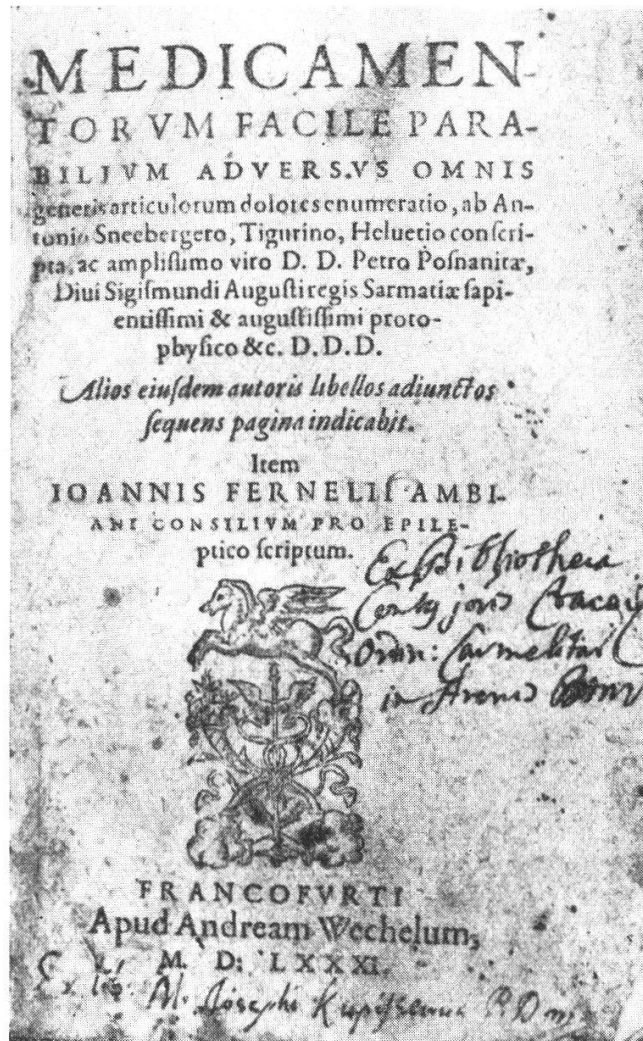 MEDICAMEN-
TORVM FACILE PARA-
BILIVM ADVERSVS OMNIS
generis articulorum dolores enumeratio, ab An-
tonio Sneebergero, Tigurino, Heluetio conſcri-
pta, ac ampliſſimo viro D. D. Petro Poſnanitæ,
Diui Sigiſmundi Auguſti regis Sarmatiæ ſapi-
entiſſimi & auguſtiſſimi proto-
phyſico &c. D.D.D.
Alios eiuſdem autoris libellos adiunctos
ſequens pagina indicabit.
Item
IOANNIS FERNELII AMBI-
ANI CONSILIVM PRO EPILE-
ptico ſcriptum.
Ex Bibliotheca
Ordin: Carmelitar
in Arenis
FRANCOFVRTI
Apud Andream Wechelum,
M. D. LXXXI.
Ex lib. M. Josephi